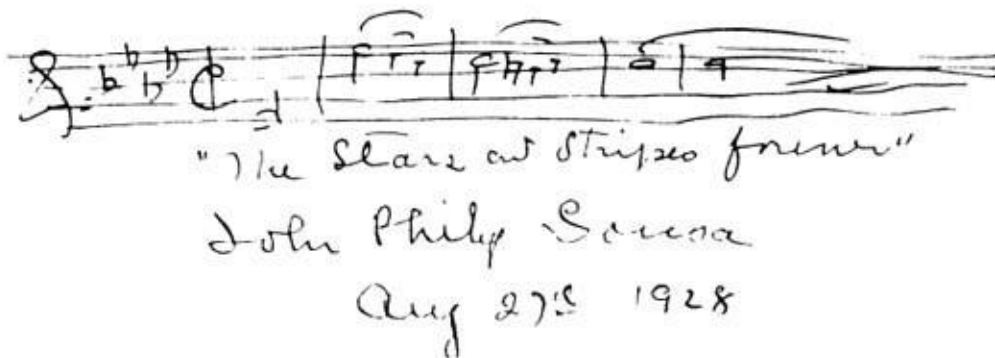 "The Stars and Stripes forever"
John Philip Sousa
Aug 27th 1928